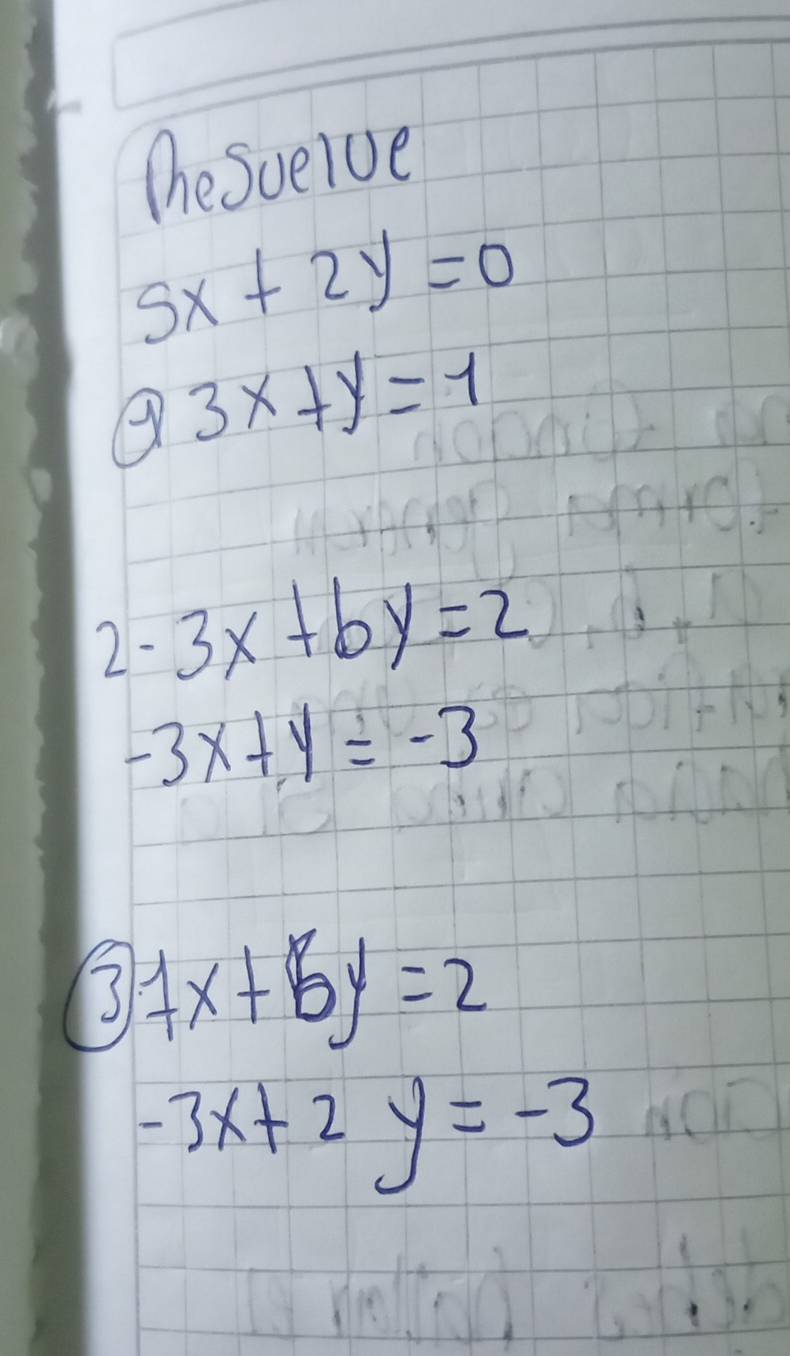 Resuelve
5x + 2y = 0
① 3x + y = 1
2- 3x + 6y = 2
-3x + y = -3
③ 7x + 5y = 2
-3x + 2y = -3